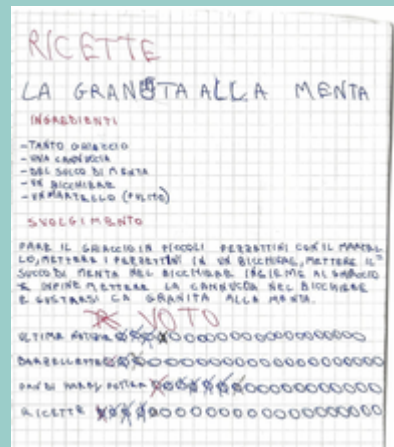 RICETTE
LA GRANITA ALLA MENTA
INGREDIENTI
-TANTO GHIACCIO
-UNA CANNUCCIA
-DEL SUCCO DI MENTA
-UN BICCHIERE
-UN MARTELLO (PULITO)
SVOLGIMENTO
FARE IL GHIACCIO IN PICCOLI PEZZETTINI CON IL MARTEL
LO, METTERE I PEZZETTINI IN UN BICCHIERE, METTERE IL
SUCCO DI MENTA NEL BICCHIERE INSIEME AL GHIACCIO
E INFINE METTERE LA CANNUCCIA NEL BICCHIERE
E GUSTARSI LA GRANITA ALLA MENTA.
VOTO
ULTIMA NOTIZIA
BARZELLETTE
HARRY POTTER
RICETTE